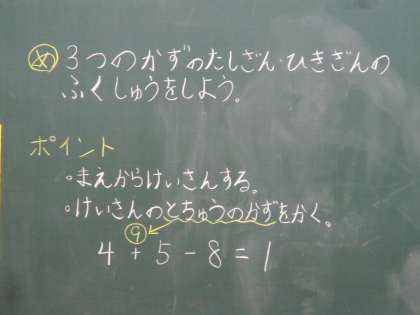 め 3つのかずのたしざん・ひきざんの
ふくしゅうをしよう。
ポイント
・まえからけいさんする。
・けいさんのとちゅうのかずをかく。
9
4 + 5 - 8 = 1